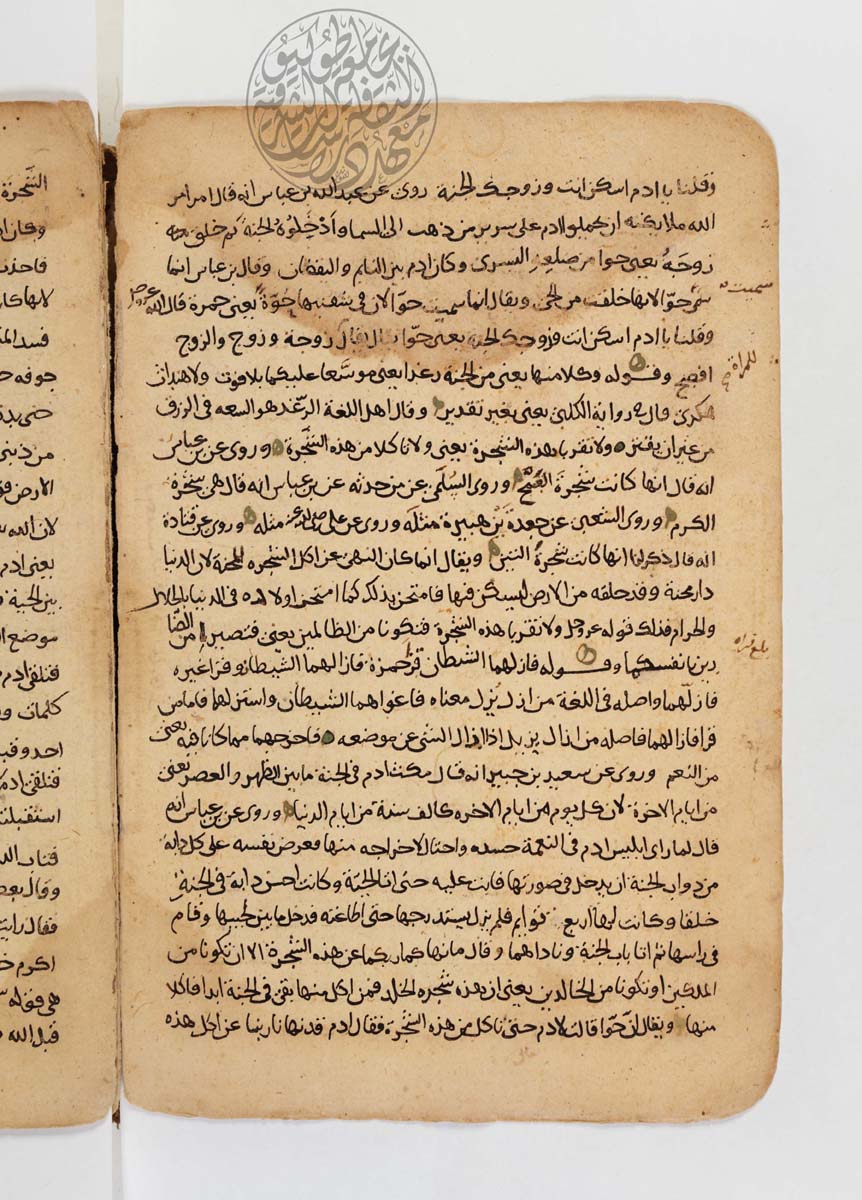 وقلنا يا ادم اسكن انت وزوجك الجنة روى عن عبد الله بن عباس انه قال امر
الله ملايكته ان يحملوا ادم على سرير من ذهب الى السما وادخلوه الجنة ثم خلق منه
زوجه يعنى حوا من ضلعه اليسرى وكان ادم بين النايم واليقظان وقال بن عباس انما
سميت
سمى حوا لانها خلقت من الحى ويقال انما سميت حوا لان فى شفتيها حوة يعنى حمرة قال الله عز وجل
وقلنا يا ادم اسكن انت وزوجك الجنة يعنى حوا يقال زوجة وزوج والزوج
للمراة
افصح وقوله وكلا منها يعنى من الجنة رغدا يعنى موسعا عليكما بلا فوت ولا هنداز
هكذى قال فى رواية الكلبى يعنى بغير تقدير وقال اهل اللغة الرغد هو السعه فى الرزق
من غير ان يقتر ولا تقربا هذه الشجرة يعنى ولا تاكلا من هذه الشجرة وروى عن بن عباس
انه قال انها كانت شجرة القمح وروى السلمى عن من حدثه عن بن عباس انه قال هى شجرة
الكرم وروى الشعبى عن جعدة بن هبيرة مثله وروى عن على مثله وروى عن قتادة
انه قال ذكر لنا انها كانت شجرة التين ويقال انما كان النهى عن اكل الشجره للمحنة لان الدنيا
دار محنة وقد خلقه من الارض ليسكن فيها فامتحن بذلك كما امتحن اولاده فى الدنيا بالحلال
والحرام فذلك قوله عز وجل ولا تقربا هذه الشجرة فتكونا من الظالمين يعنى فتصيرا من الضا
رين بانفسكما وقوله فازلهما الشيطان قرا حمزة فازالهما الشيطان وقرا غيره
فازلهما واصله فى اللغة من ازل يزل معناه فاغواهما الشيطان واستزلهما فاما من
قرا فازالهما فاصله من ازال يزيل اذا ازال الشى عن موضعه فاخرجهما مما كانا فيه يعنى
من النعم وروى عن سعيد بن جبير انه قال مكث ادم فى الجنة ما بين الظهر والعصر يعنى
من ايام الاخرة لان كل يوم من ايام الاخره كالف سنة من ايام الدنيا وروى عن بن عباس انه
قال لما راى ابليس ادم فى النعمة حسده واحتال لاخراجه منها فعرض نفسه على كل دابه
من دواب الجنة ان يدخل فى صورتها فابت عليه حتى اتا الحية وكانت احسن دابة فى الجنة
خلقا وكانت لها اربع قوايم فلم يزل يستدرجها حتى اطاعته فدخل ما بين لحييها وقام
فى راسها ثم اتا باب الجنة وناداهما وقال ما نهاكما ربكما عن هذه الشجرة الا ان تكونا من
الملكين او تكونا من الخالدين يعنى ان هذه شجره الخلد فمن اكل منها بقى فى الجنة ابدا فاكلا
منها ويقال ان حوا قالت لادم حتى ناكل من هذه الشجرة فقال ادم قد نهانا ربنا عن اكل هذه